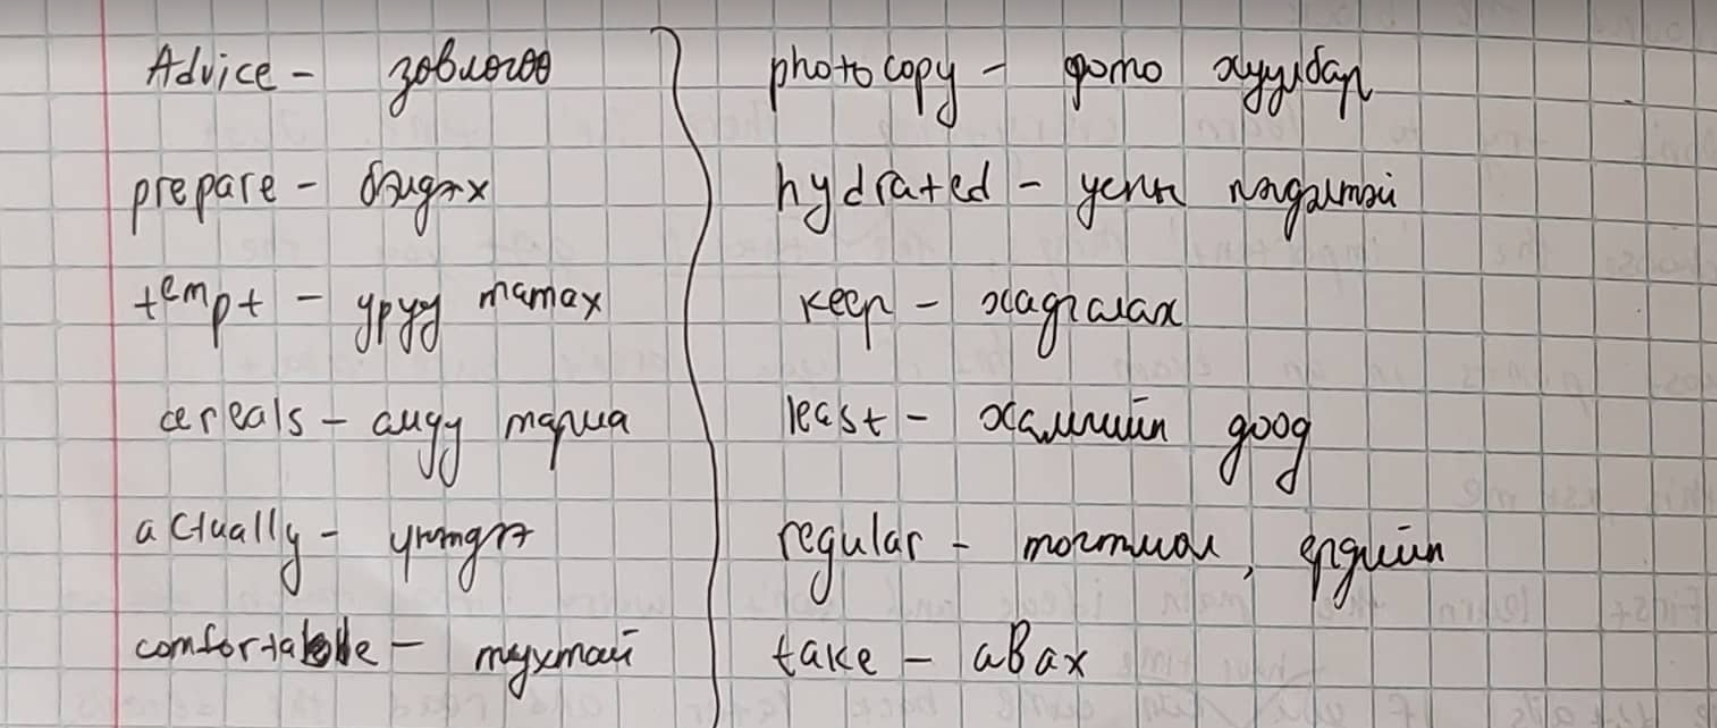 Advice - зөвлөгөө
prepare - бэлдэх
tempt - уруу татах
cereals - аиду тариа
actually - үнэндээ
comfortable - тухтай
photocopy - фото хуулбар
hydrated - усны
keep - хадгалах
least - хамгийн доод
regular - тогтмол, ердийн
take - авах